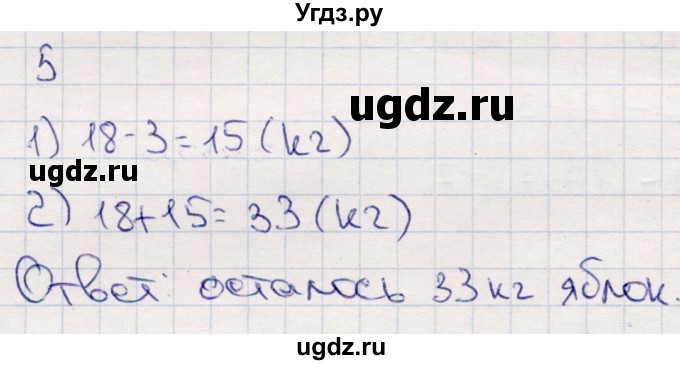 Угдз.ру
5
ugdz.ru
1) 18-3=15 (кг)
ugdz.ru
2) 18+15= 33 (кг)
Ответ: осталось 33 кг яблок.
ugdz.ru